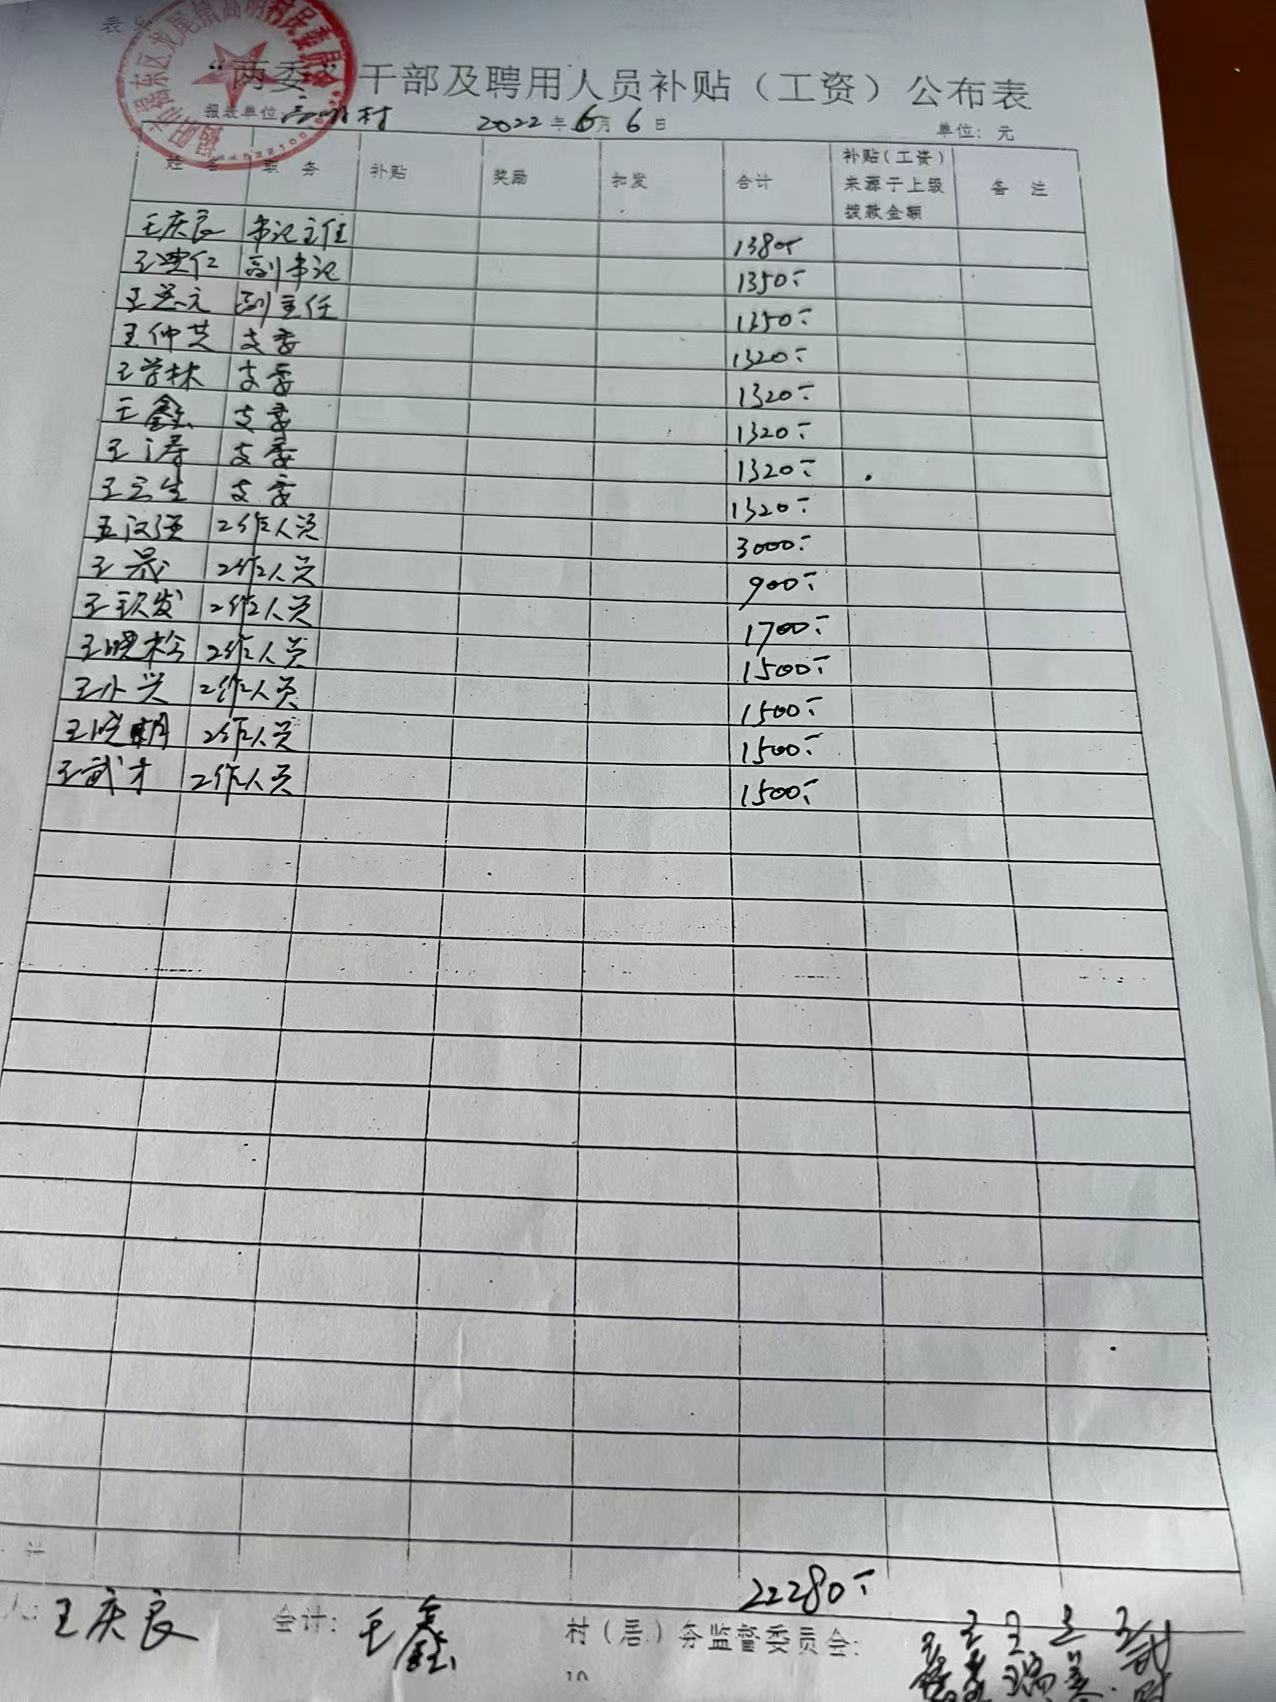 表
揭阳市揭东区龙尾镇高明村民委员会
“两委”干部及聘用人员补贴（工资）公布表
报表单位 高明村 2022年6月6日 单位：元
姓 名 职 务 补贴 奖励 扣发 合计 补贴（工资）来源于上级拨款金额 备 注
王庆良 书记主任 1380
副书记 1350
副主任 1350
王仲芝 支委 1320
王学林 支委 1320
王鑫 支委 1320
王涛 支委 1320
王云生 支委 1320
王汉强 工作人员 3000
王晟 工作人员 900
王钦发 工作人员 1700
王晓松 工作人员 1500
王小兴 工作人员 1500
王晓明 工作人员 1500
王武才 工作人员 1500
计 22280
人：王庆良 会计：王鑫 村（居）务监督委员会：
10